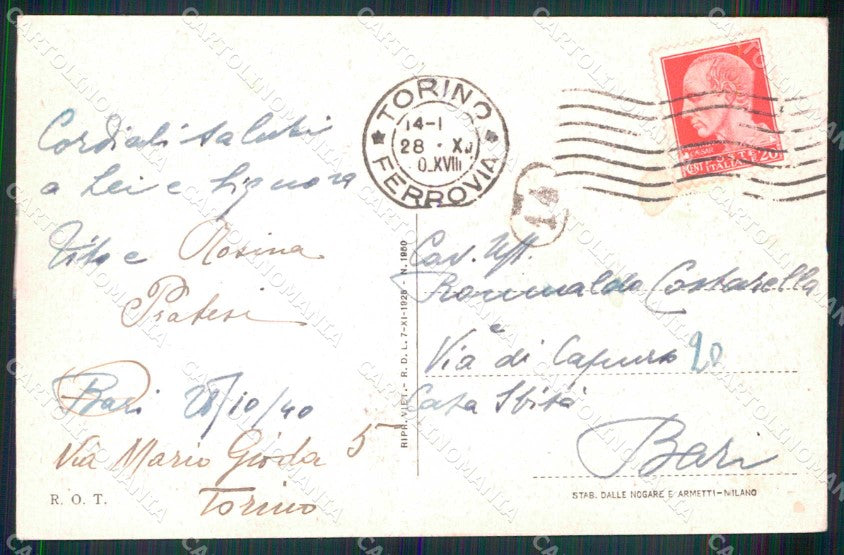 Cordiali saluti
a Lei e Signora
Vito e Rosina
Pratesi
Bari 28/10/40
Via Mario Gioda 5
Torino
R. O. T.
RIPR. VIET. - R. D. L. 7-XI-1925 - N. 1950
TORINO
14-1
28 · X
XVIII
FERROVIA
14
CENT 20
Cav. Uff.
Romualdo Costarella
Via di Capurso 20
Casa Sbisà
Bari
STAB. DALLE NOGARE E ARMETTI-MILANO
CARTOLINOMANIA